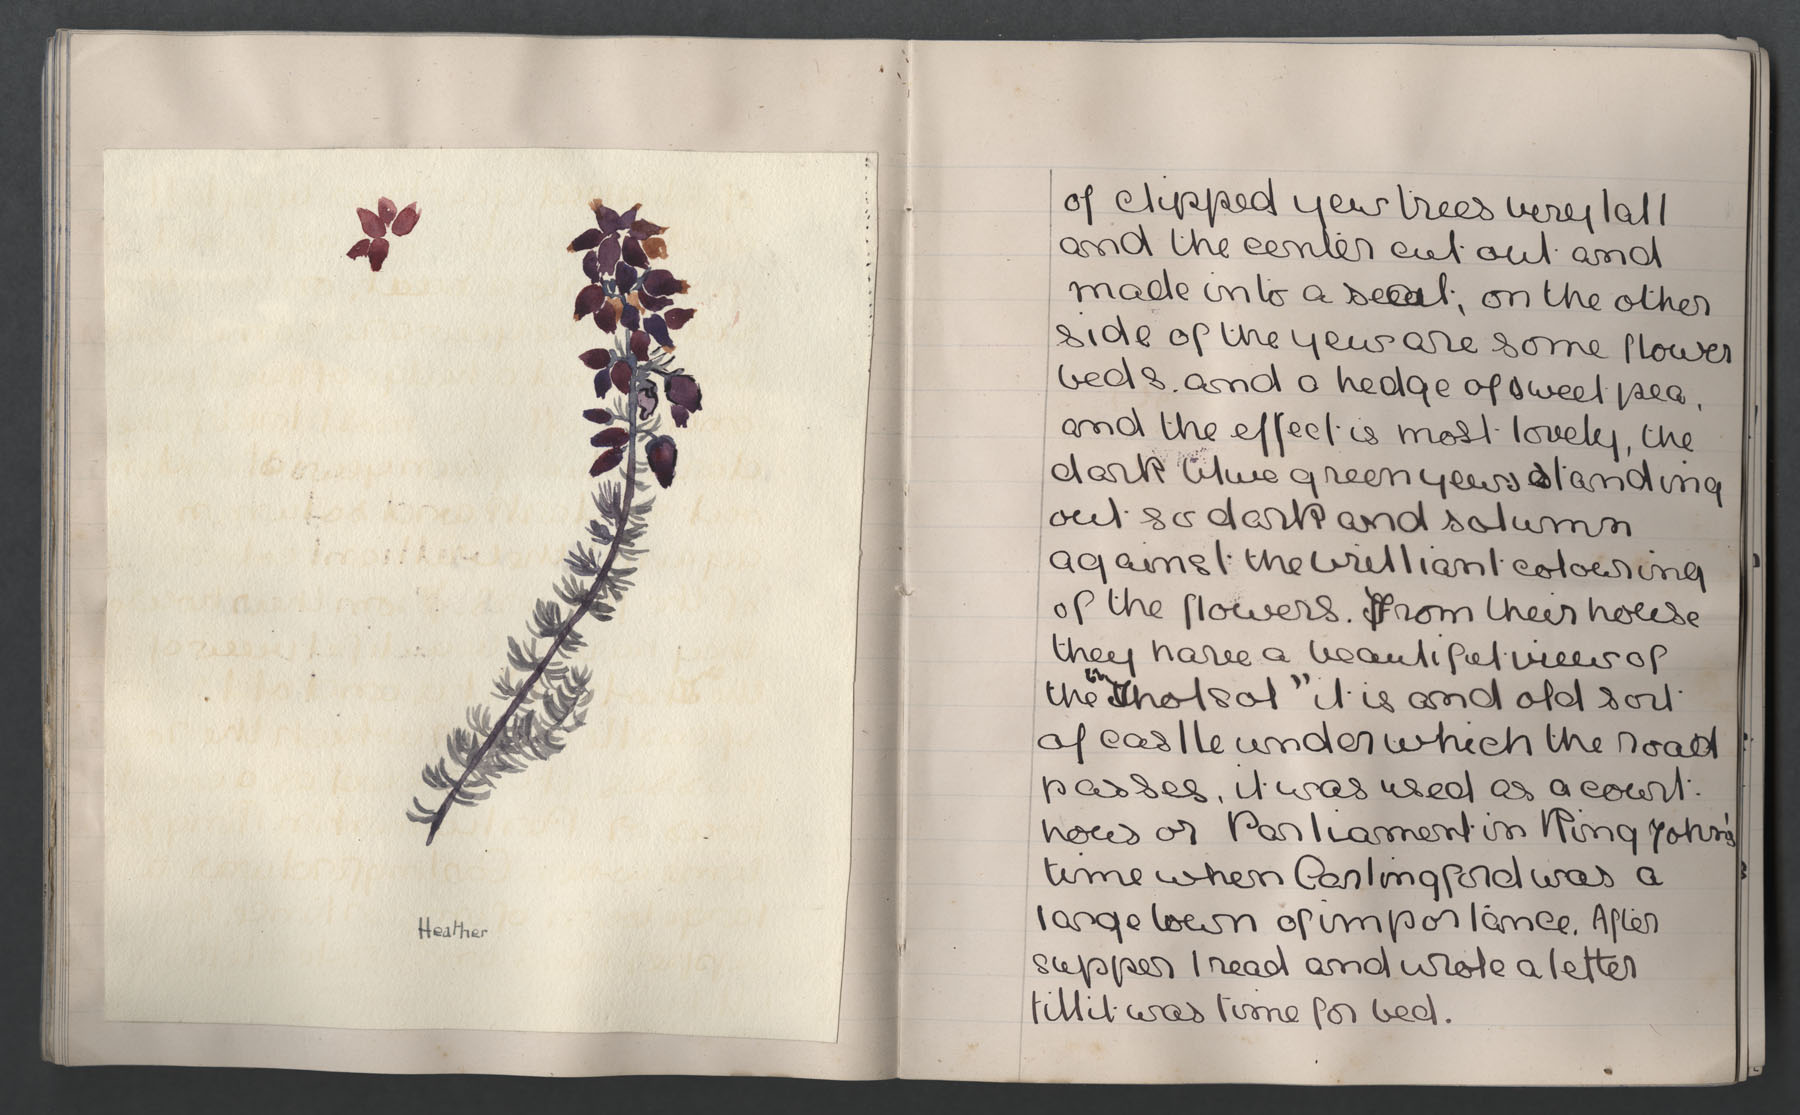 Heather
of clipped yew trees very tall
and the center cut out and
made into a seat, on the other
side of the yew are some flower
beds. and a hedge of sweet pea,
and the effect is most lovely, the
dark blue green yews standing
out so dark and solumn
against the brilliant colouring
of the flowers. From their house
they have a beautiful view of
the "Tholsol" it is and old sort
of castle under which the road
passes, it was used as a court
hous or Parliament in King John's
time when Carlingford was a
large town of importance. After
supper I read and wrote a letter
till it was time for bed.